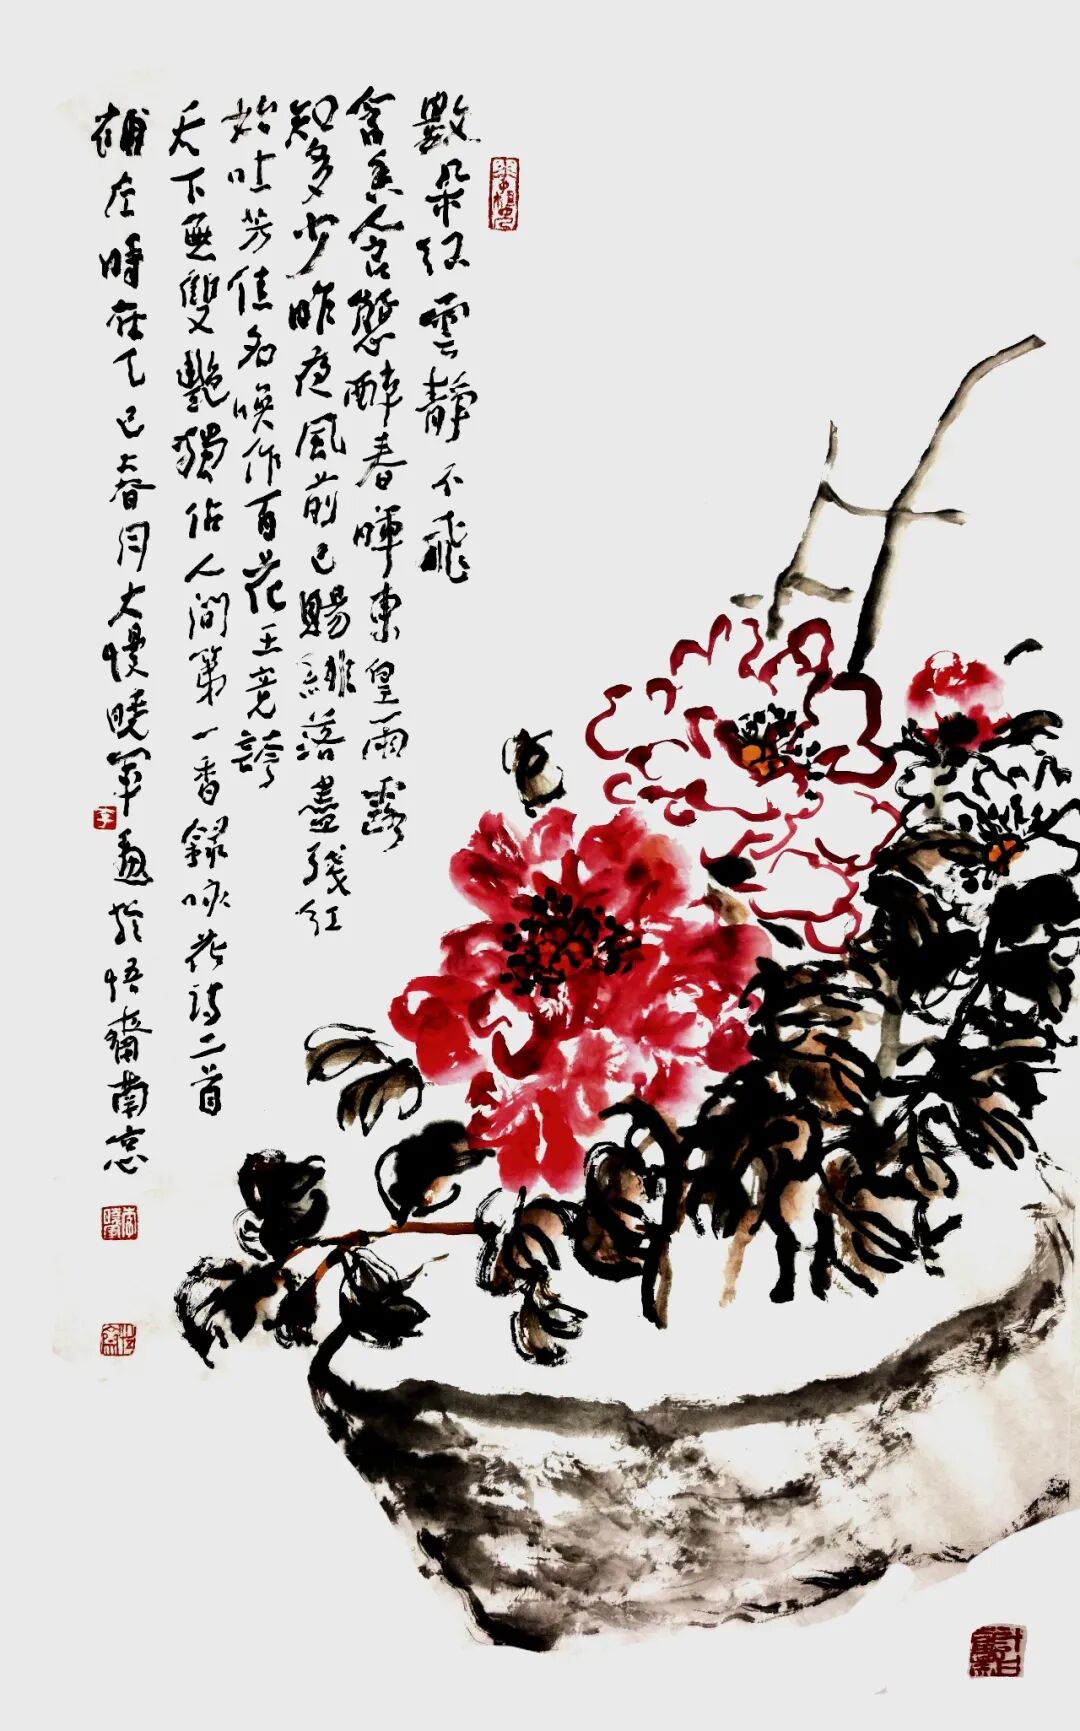 數朵红雲静不飛
含香含態醉春暉東皇雨露
知多少昨夜風前已賜緋落盡殘红
始吐芳佳名唤作百花王竞誇
天下無雙艷獨佔人間第一香録咏花诗二首
補左時在乙巳春月大慢曉軍画於悟齋南窓